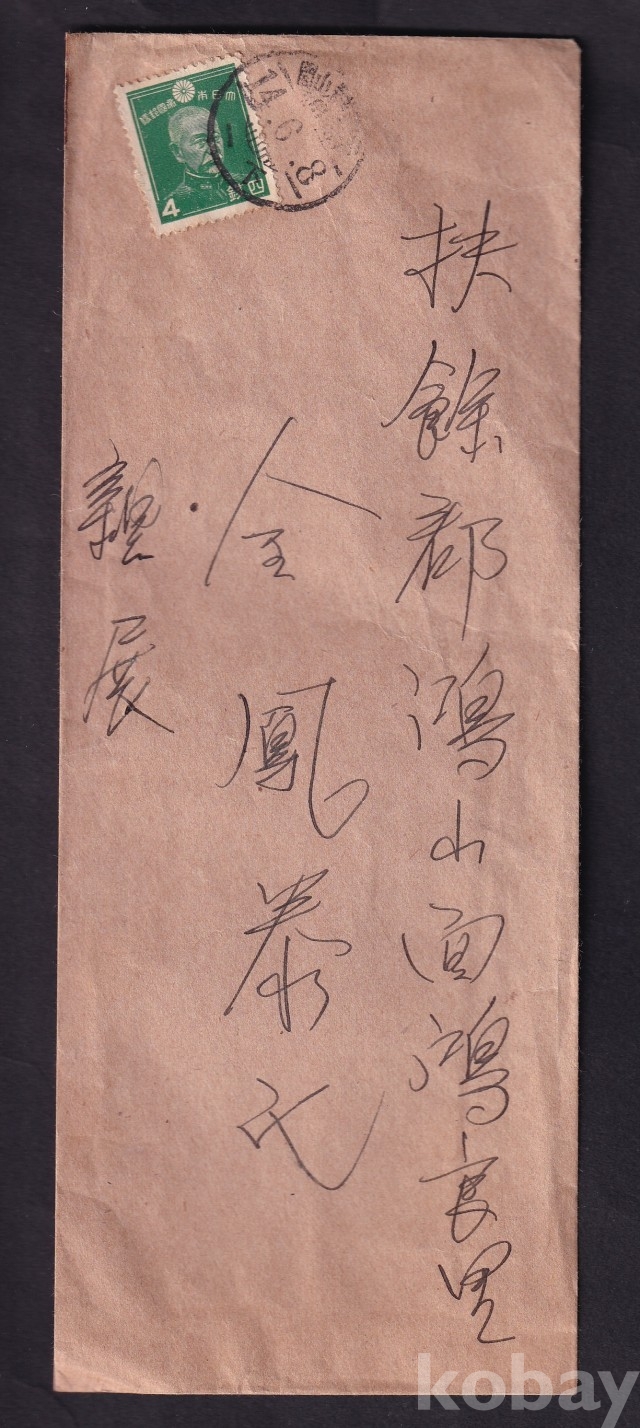 大日本帝國郵便
4
14.6.8
扶餘郡鴻山面鴻良里
全鳳泰氏
親展
kobay